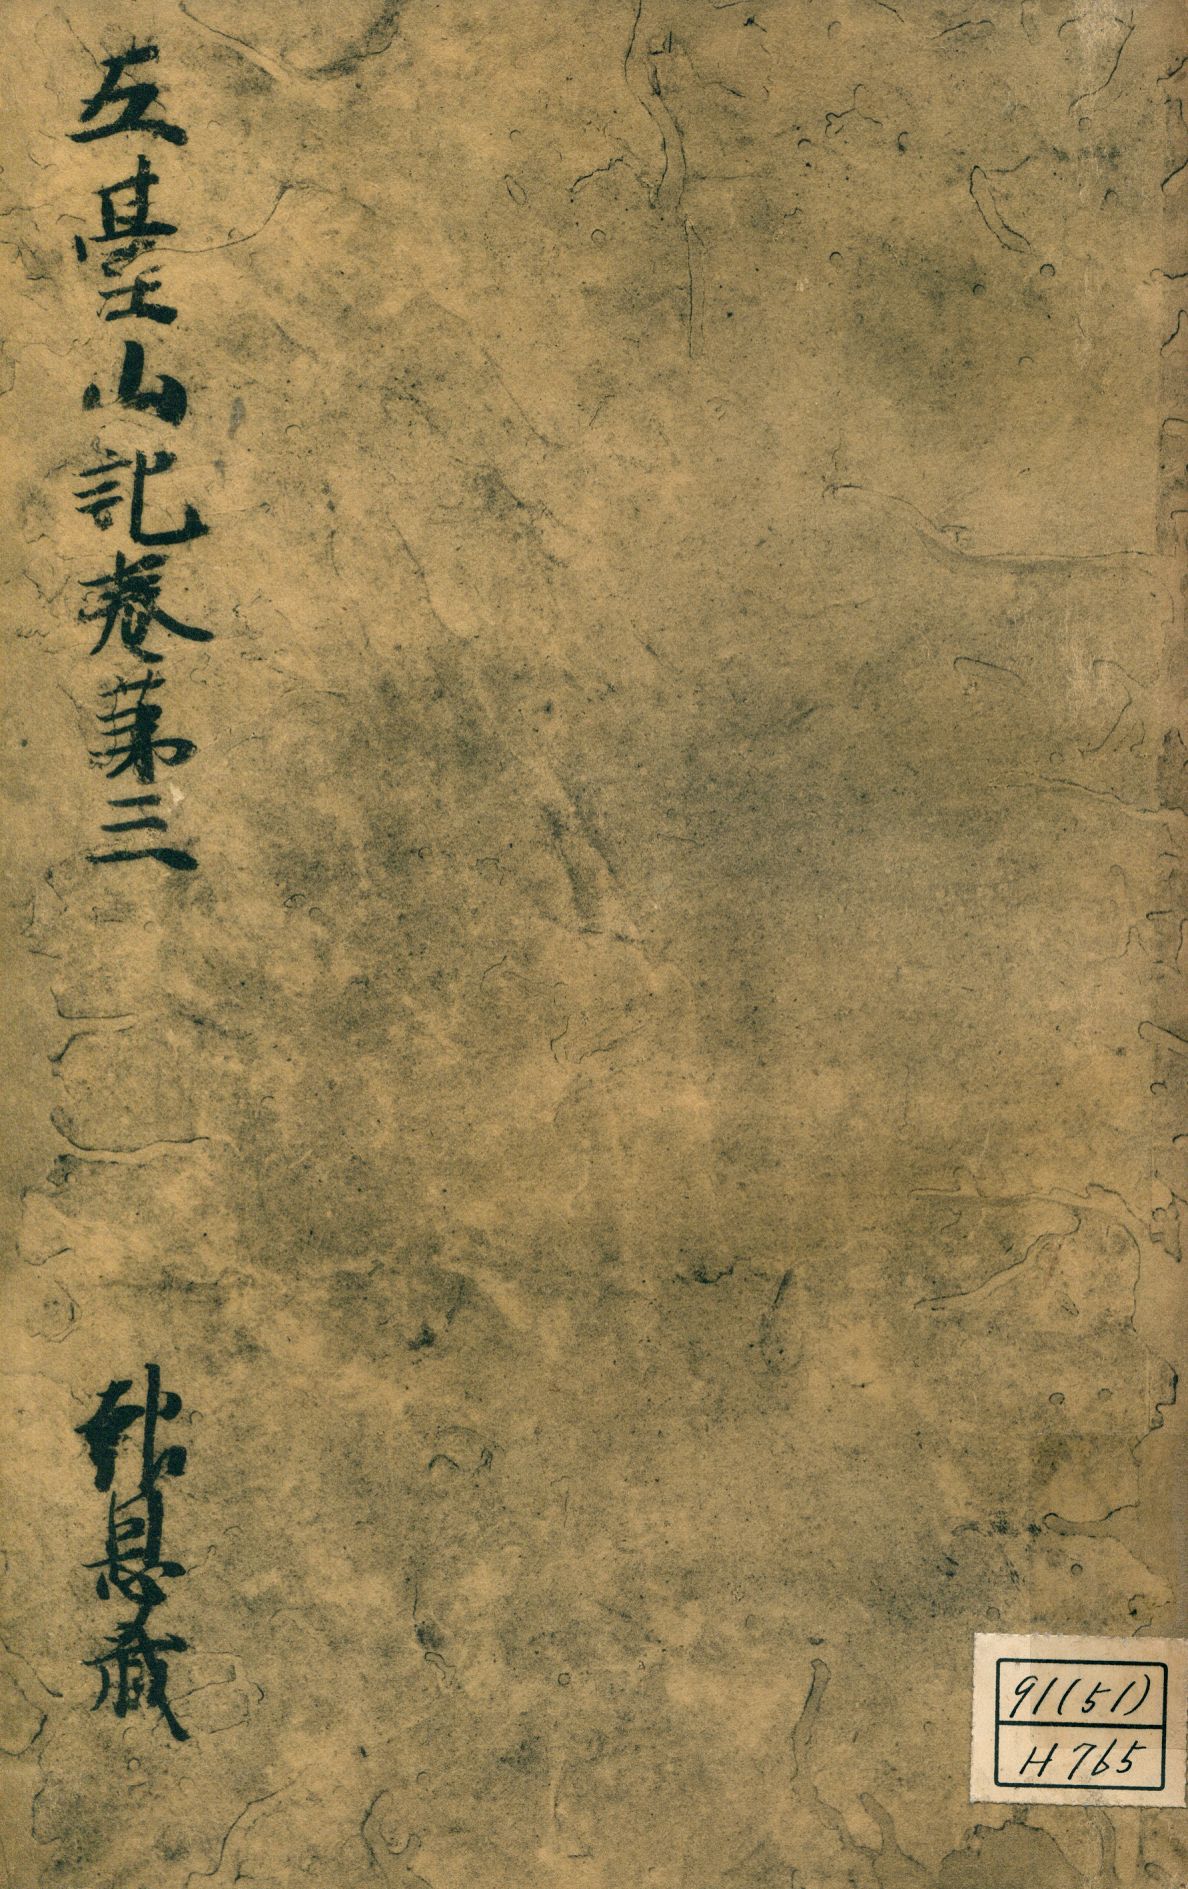 五臺山記卷第三
歸息藏
91(51)
H 765